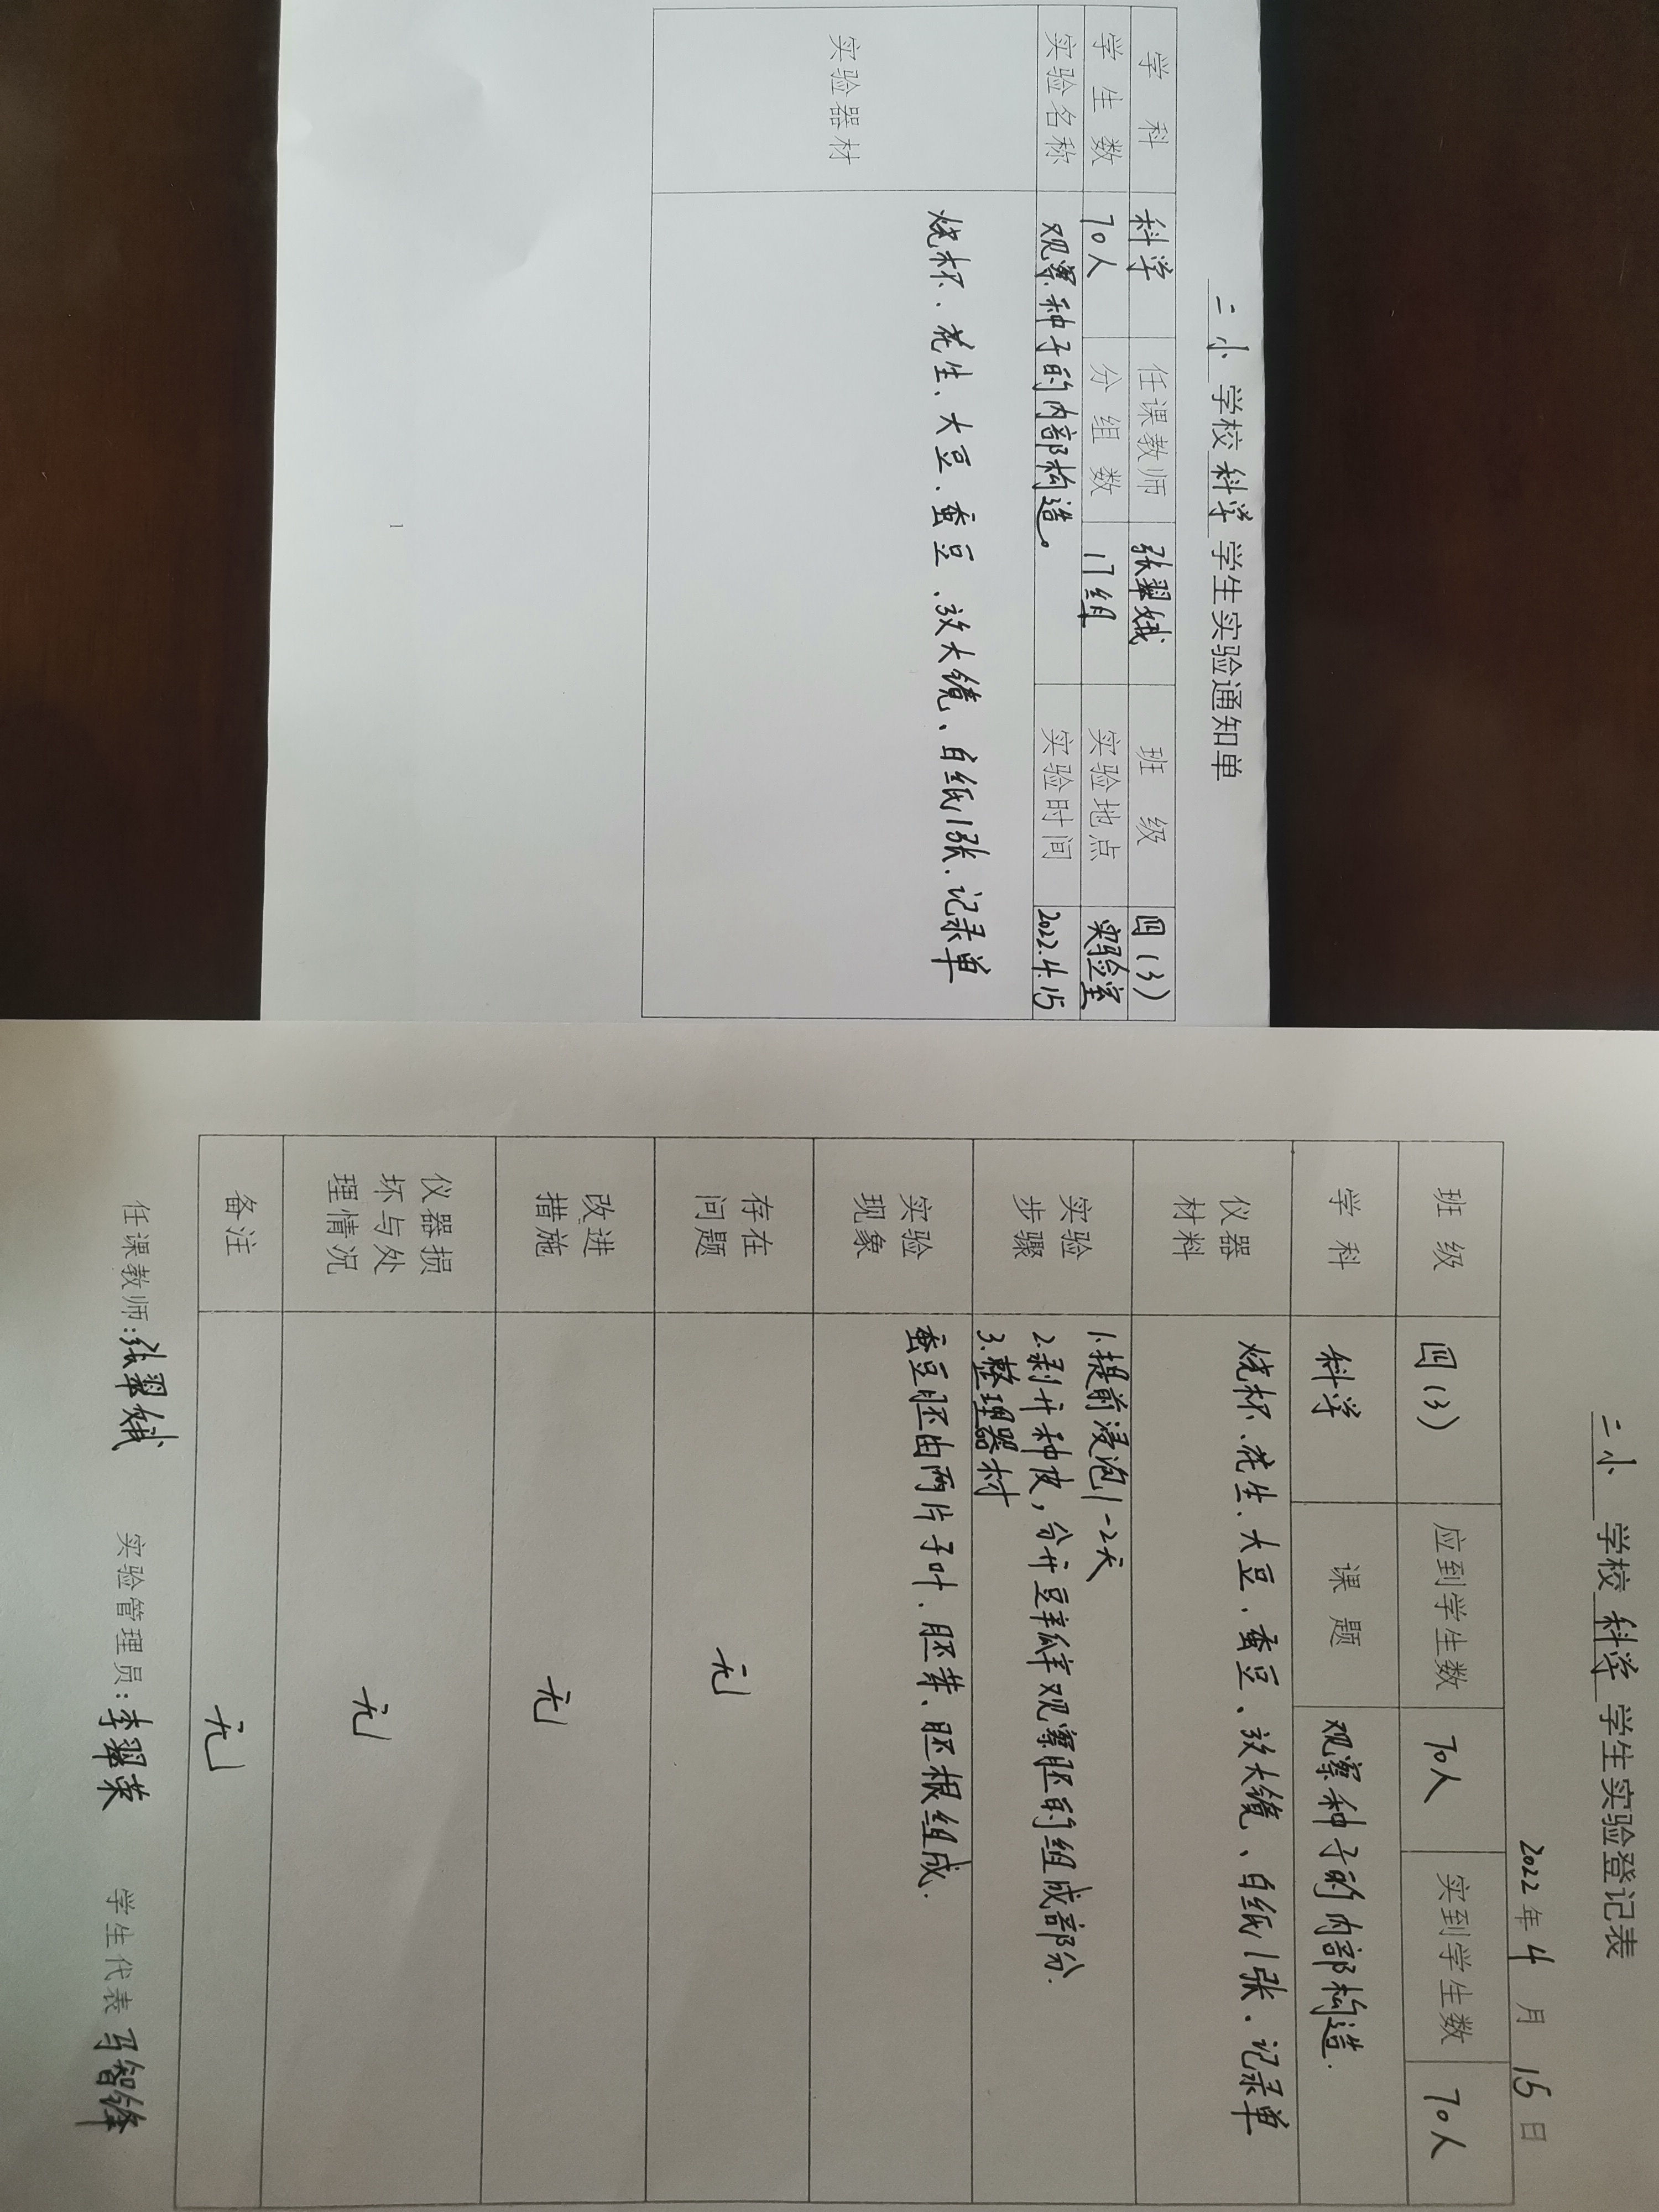 二小 学校 科学 学生实验通知单
学科 科学 任课教师 张翠娥 班级 四(3)
学生数 70人 分组数 17组 实验地点 实验室
实验名称 观察种子的内部构造。 实验时间 2022.4.15
实验器材 烧杯、花生、大豆、蚕豆、放大镜、白纸1张、记录单
1
二小 学校 科学 学生实验登记表
2022年4月15日
班级 四(3) 应到学生数 70人 实到学生数 70人
学科 科学 课题 观察种子的内部构造.
仪器
材料
烧杯、花生、大豆、蚕豆、放大镜、白纸1张、记录单
实验
步骤
1.提前浸泡1-2天
2.剥开种皮,分开豆瓣观察胚的组成部分.
3.整理器材
实验
现象
蚕豆胚由两片子叶、胚芽、胚根组成.
存在
问题
无
改进
措施
无
仪器损
坏与处
理情况
无
备注 无
任课教师:张翠娥 实验管理员:李翠荣 学生代表 马智锋